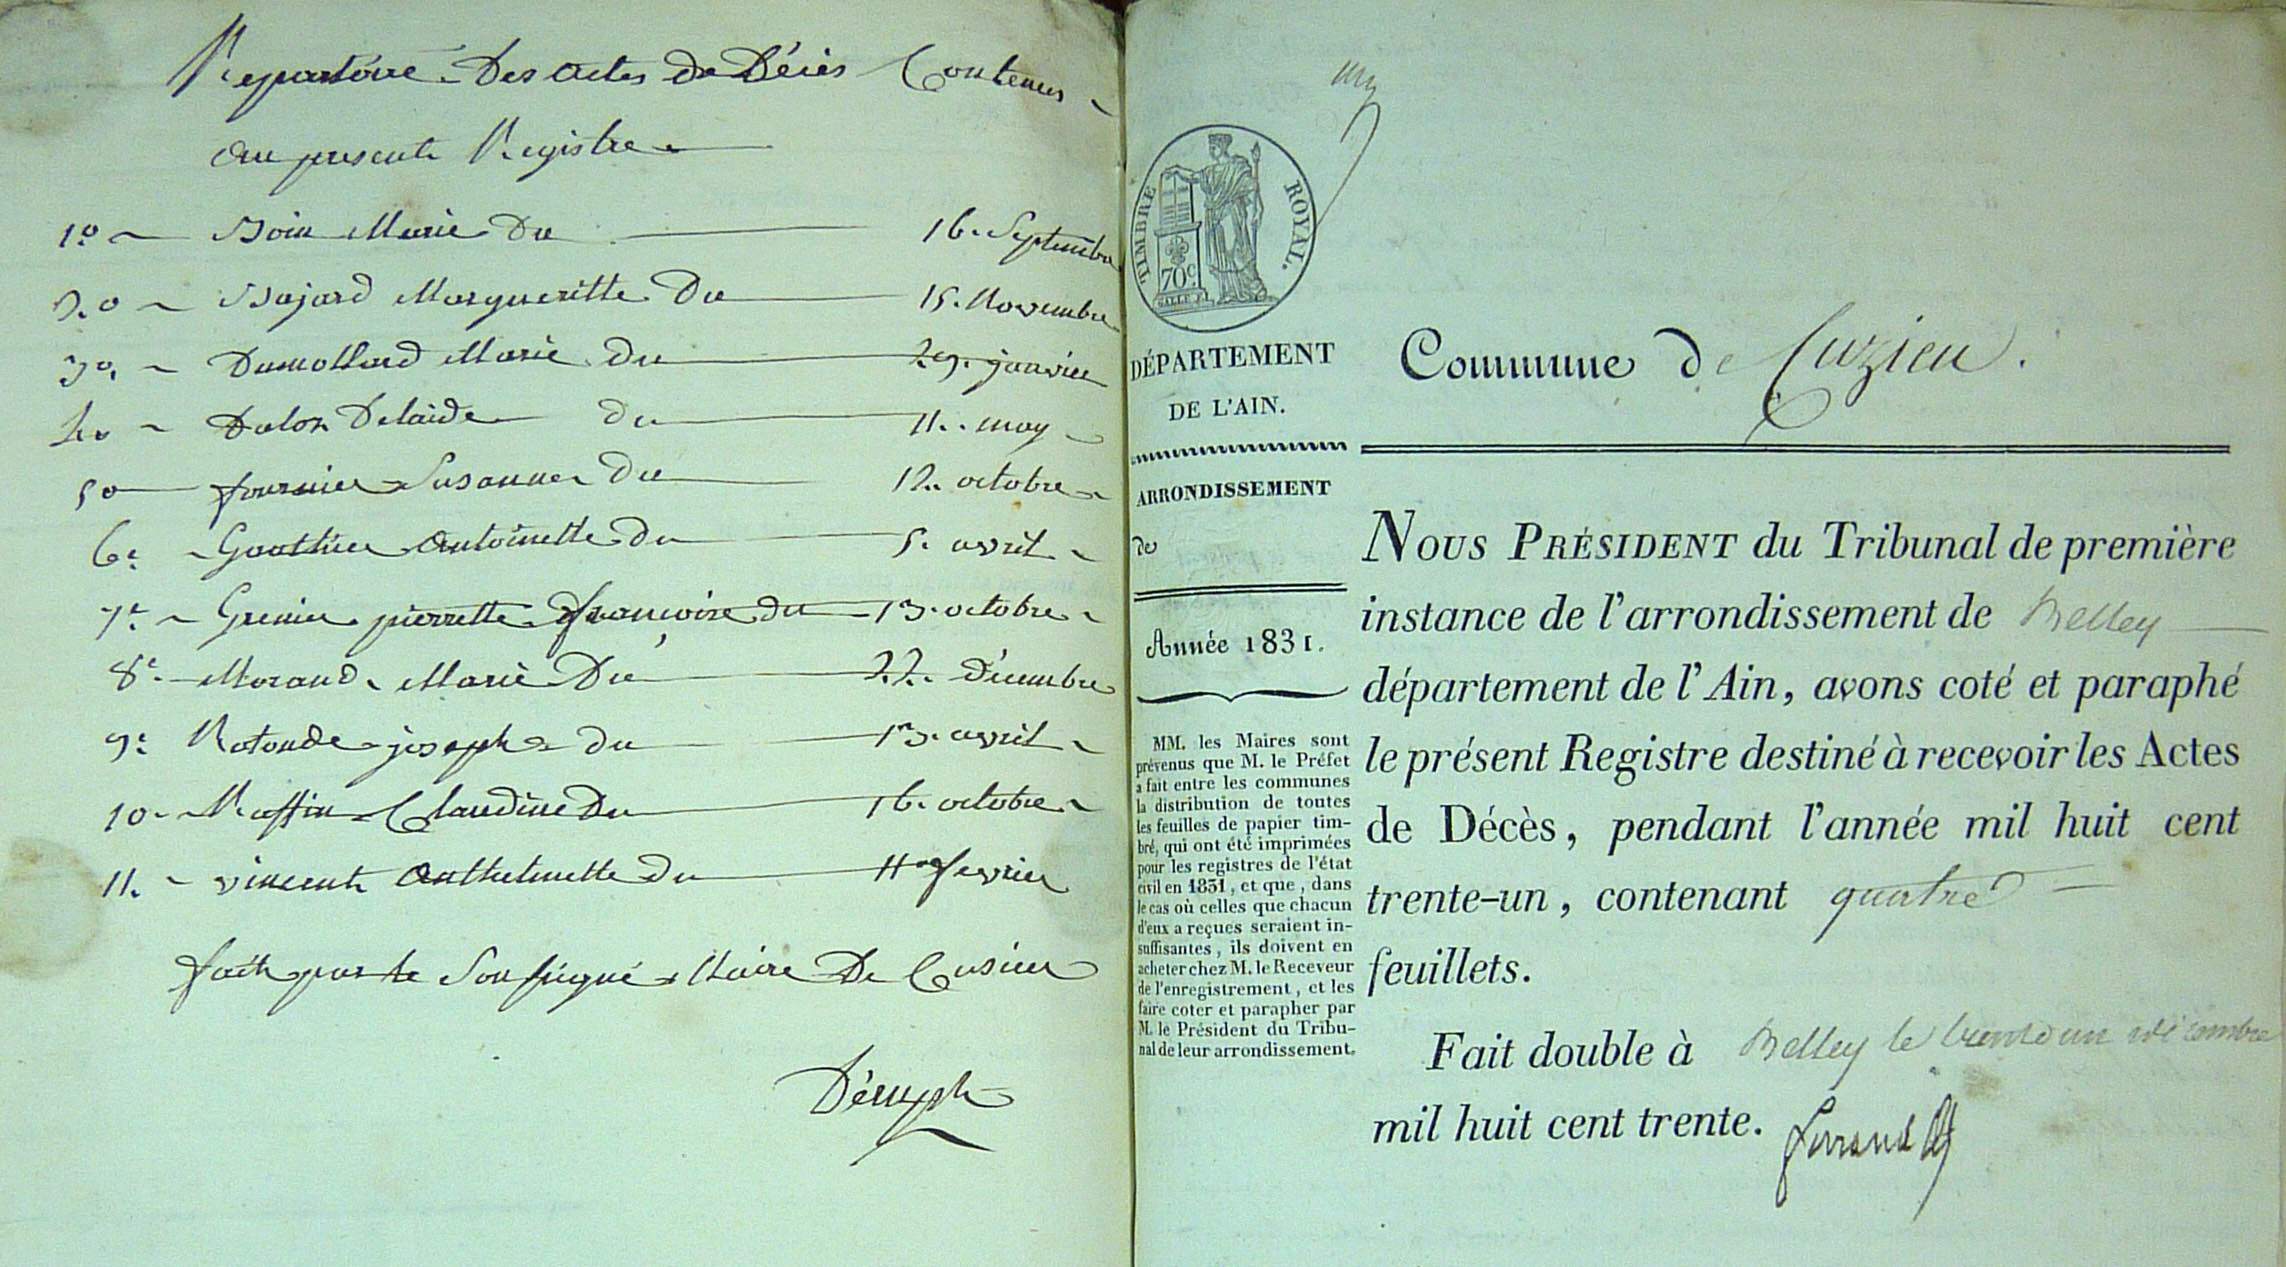 Repertoire Des actes de Décès Contenus
au present Registre
1º Boin Marie Du 16. Septembre
2.º Bajard Margueritte Du 15. Novembre
3º Dumollard Marie Du 29. janvier
4º Dulon Delaide du 11. may
5º fournier Susanne Du 12. octobre
6e Gauthier Antoinette du 5. avril
7e Grenier pierrette françoise du 13. octobre
8e Morand Marie Du 22. Décembre
9e Rotonde joseph du 13. avril
10 Ruffin Claudine Du 16. octobre
11. vincent Anthelmette Du 11 fevrier
fait par le Sousigné Maire De Cusieu
TIMBRE ROYAL.
70c
DÉPARTEMENT
DE L'AIN.
ARRONDISSEMENT
de
Année 1831.
MM. les Maires sont
prévenus que M. le Préfet
a fait entre les communes
la distribution de toutes
les feuilles de papier tim-
bré, qui ont été imprimées
pour les registres de l'état
civil en 1831, et que, dans
le cas où celles que chacun
d'eux a reçues seraient in-
suffisantes, ils doivent en
acheter chez M. le Receveur
de l'enregistrement, et les
faire coter et parapher par
M. le Président du Tribu-
nal de leur arrondissement.
Commune de Cuzieu.
NOUS PRÉSIDENT du Tribunal de première
instance de l'arrondissement de Belley
département de l'Ain, avons coté et paraphé
le présent Registre destiné à recevoir les Actes
de Décès, pendant l'année mil huit cent
trente-un, contenant quatre
feuillets.
Fait double à Belley le trente un décembre
mil huit cent trente.